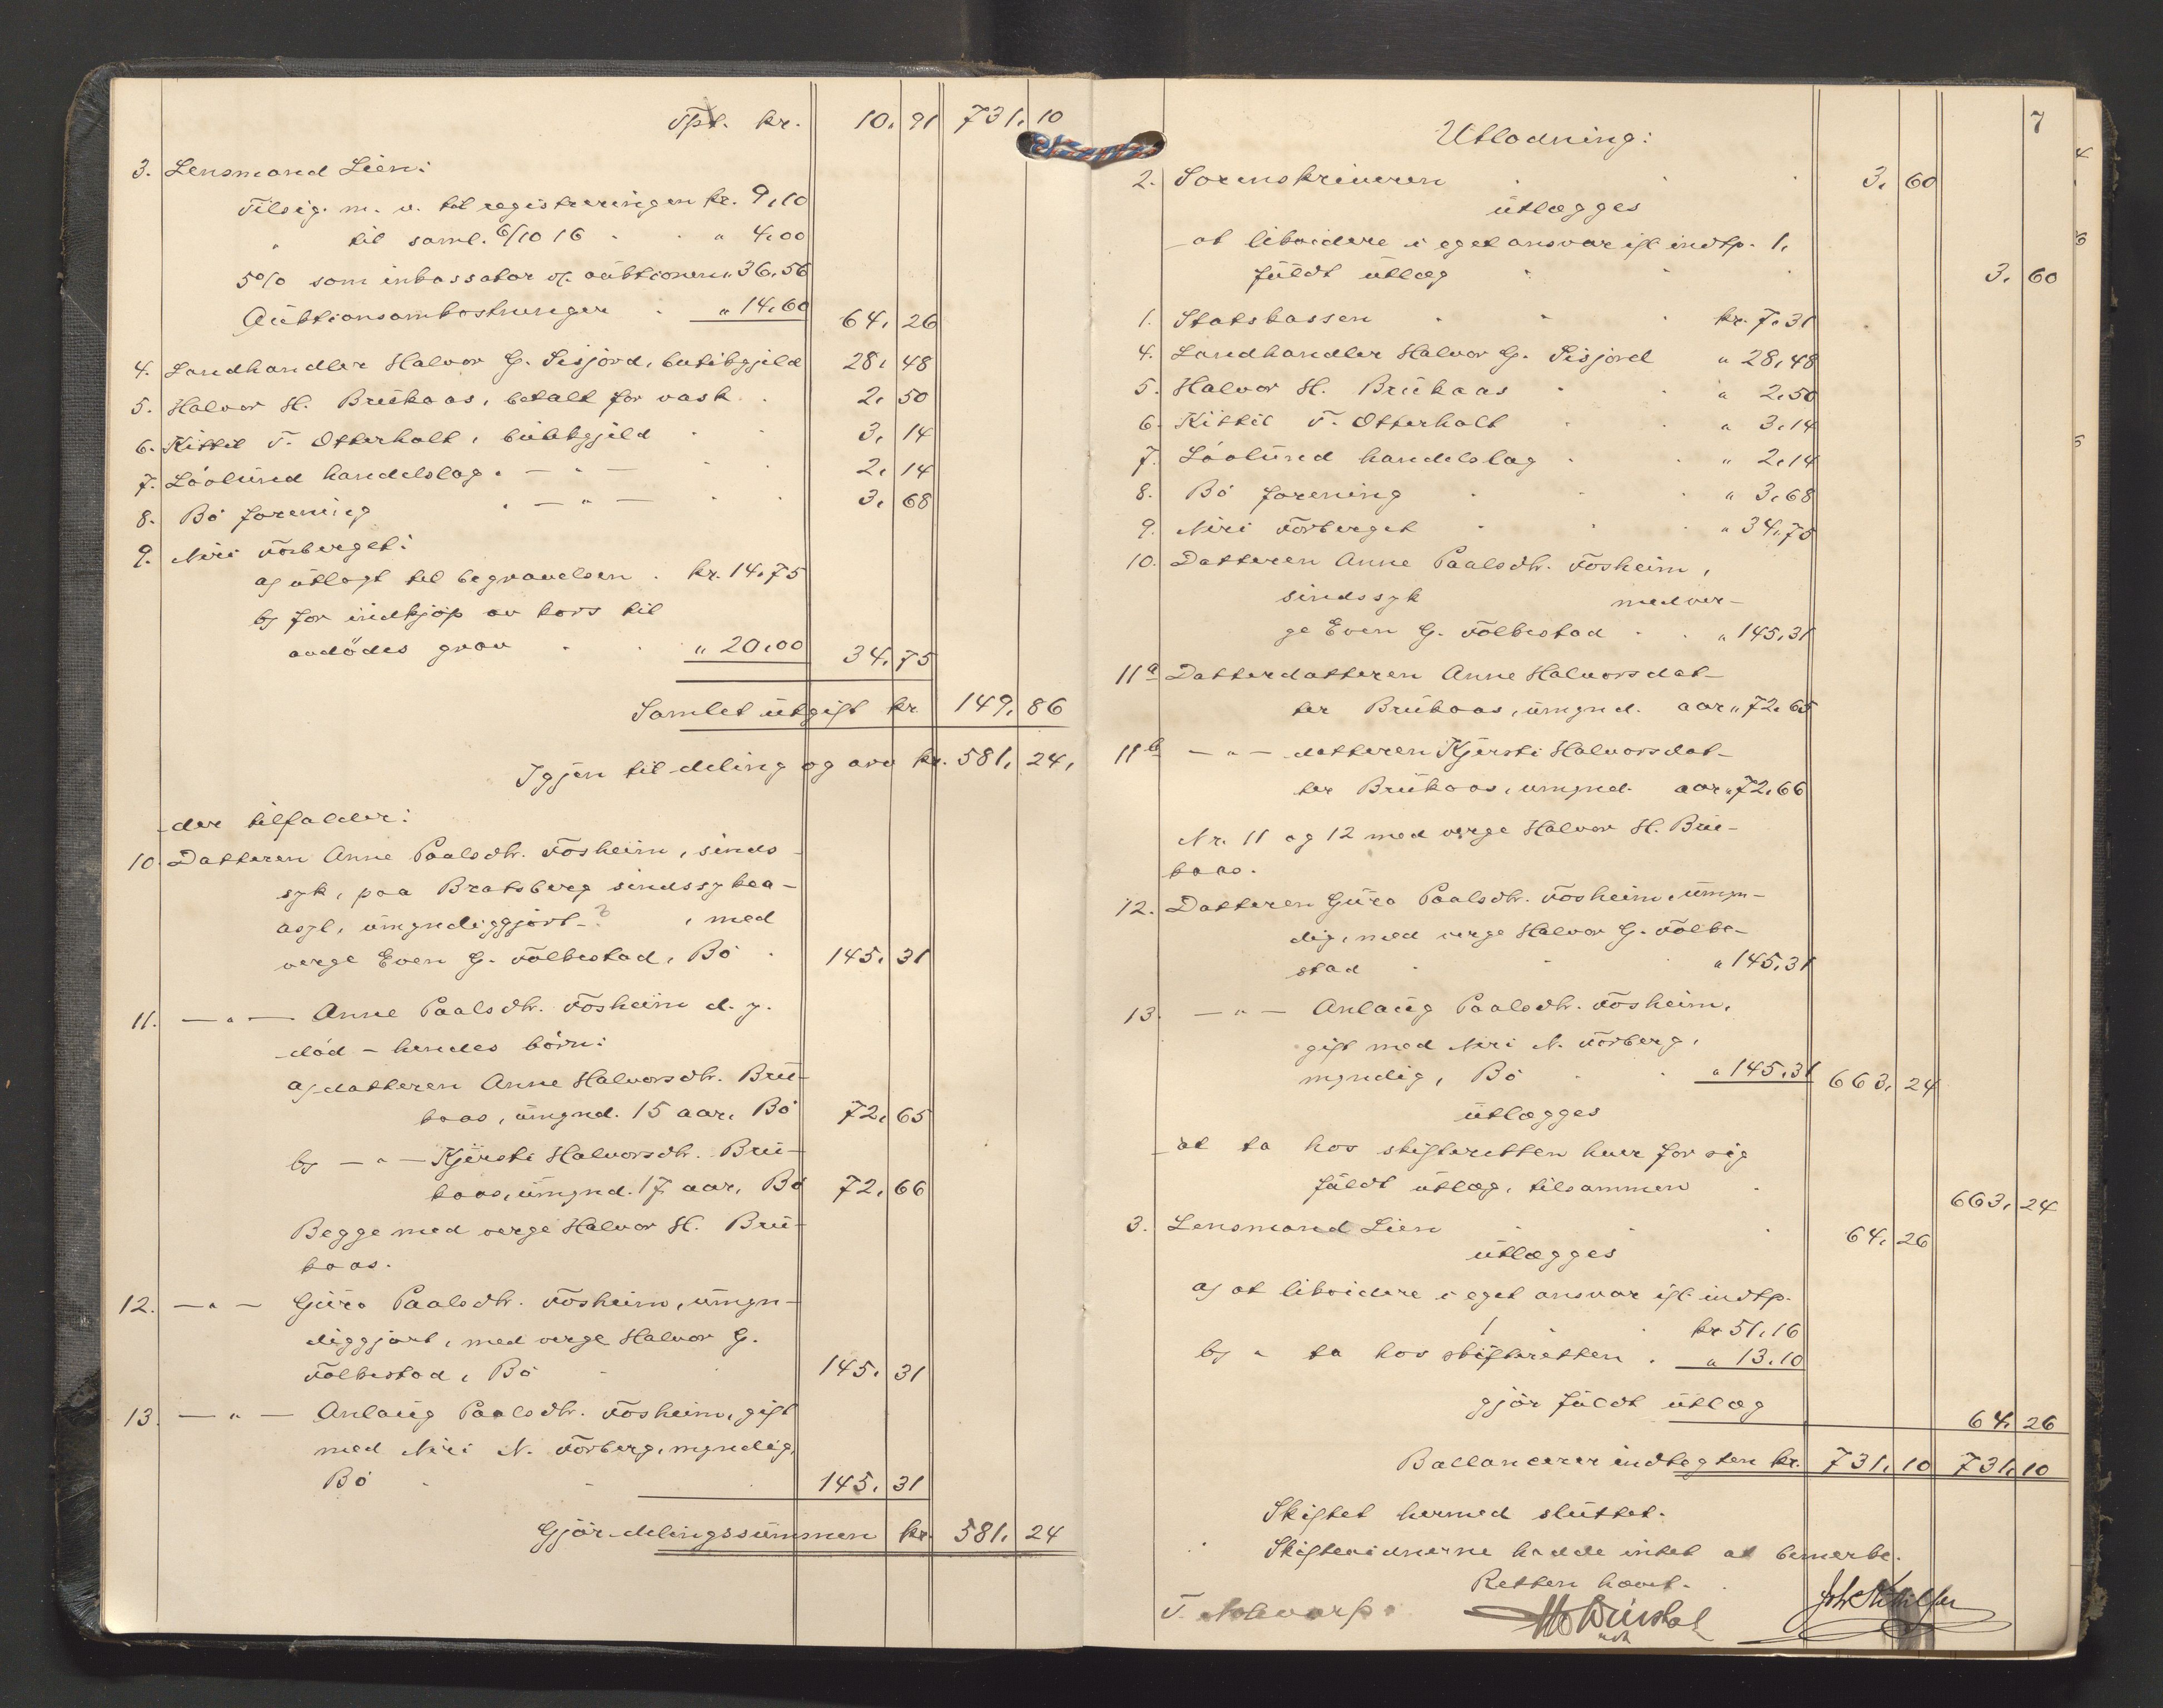 Tpt. kr. 10.91 731.10
3. Lensmand Lien:
Tilsig. m. v. til registreringen kr. 9.10
" til saml. 6/10 16 . . " 4.00
5% som inkassator v/. auktionen " 36.56
Auktionsomkostninger . " 14.60 64.26
4. Landhandler Halvor G. Sisjord, butikgjeld 28.48
5. Halvor H. Brukaas, betalt for vask . 2.50
6. Kittil T. Otterholt, butikgjeld . . 3.14
7. Løolund handelslag . — " — . . 2.14
8. Bø forening . — " — . . 3.68
9. Neri Forberget:
a) utlagt til begravelsen . kr. 14.75
b) for indkjøp av kors til
avdødes grav . . " 20.00 34.75
Samlet utgift kr. 149.86
Igjen til deling og arv kr. 581.24.
der tilfalder:
10. Datteren Anne Paalsdtr. Fosheim, sinds-
syk, paa Bratsberg sindssykea-
asyl, umyndiggjort-? , med
verge Even G. Folkestad, Bø . 145.31
11. — " — Anne Paalsdtr. Fosheim d. y.
død - hendes børn:
a) datteren Anne Halvorsdtr. Bru-
kaas, umynd. 15 aar, Bø 72.65
b) — " — Kjersti Halvorsdtr. Bru-
kaas, umynd. 17 aar, Bø 72.66
Begge med verge Halvor H. Bru-
kaas.
12. — " — Guro Paalsdtr. Fosheim, umyn-
diggjort, med verge Halvor G.
Folkestad, Bø . 145.31
13. — " — Anlaug Paalsdtr. Fosheim, gift
med Neri N. Forberg, myndig,
Bø . . 145.31
Gjør delingssummen kr. 581.24
7
Utlodning:
2. Sorenskriveren . . . 3.60
utlægges
at likvidere i eget ansvar ifl. indtp. 1.
fuldt utlæg . . . 3.60
1. Statskassen . . . kr. 7.31
4. Landhandler Halvor G. Sisjord " 28.48
5. Halvor H. Brukaas . . " 2.50
6. Kittil T. Otterholt . . " 3.14
7. Løolund handelslag . . " 2.14
8. Bø forening . . . " 3.68
9. Neri Forberget . . . " 34.75
10. Datteren Anne Paalsdtr. Fosheim,
sindssyk med ver-
ge Even G. Folkestad . . " 145.31
11a Datterdatteren Anne Halvorsdat-
ter Brukaas, umynd. aar " 72.65
11b — " — datteren Kjersti Halvorsdat-
ter Brukaas, umynd. aar " 72.66
Nr. 11 og 12 med verge Halvor H. Bru-
kaas.
12. Datteren Guro Paalsdtr. Fosheim, umyn-
dig, med verge Halvor G. Folke-
stad . . . " 145.31
13. — " — Anlaug Paalsdtr. Fosheim,
gift med Neri N. Forberg,
myndig, Bø . . " 145.31 663.24
utlægges
at ta hos skifteretten hver for sig
fuldt utlæg, tilsammen . 663.24
3. Lensmand Lien . . . 64.26
utlægges
a) at likvidere i eget ansvar ifl. indtp.
1 . kr 51.16
b) " ta hos skifteretten . " 13.10
gjør fuldt utlæg 64.26
Ballancerer indtegten kr. 731.10 731.10
Skiftet hermed sluttet.
Skiftevidnerne hadde intet at bemerke.
Retten hævet.